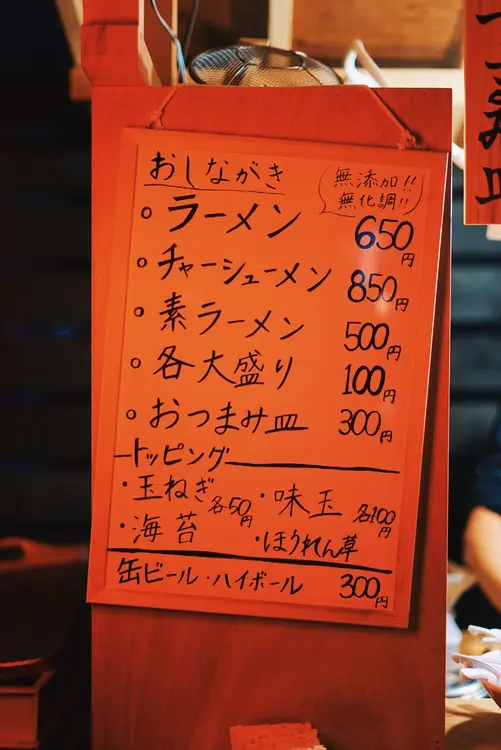 おしながき
無添加!!
無化調!!
○ラーメン 650円
○チャーシューメン 850円
○素ラーメン 500円
○各大盛り 100円
○おつまみ皿 300円
トッピング
・玉ねぎ 各50円 ・味玉 各100円
・海苔 ・ほうれん草
缶ビール・ハイボール 300円